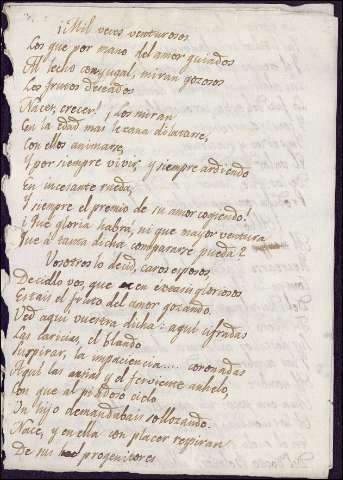 ¡Mil veces venturosos
Los que por mano del amor guiados
Al lecho conyugal, miran gozosos
Los frutos deseados
Nacer, crecer! ¡Los miran
En la edad mas lexana dilatarse,
Con ellos animarse,
Y por siempre vivir, y siempre ardiendo
En incesante rueda,
Y siempre el premio de su amor cogiendo.
¡Que gloria habrá, ni que mayor ventura
Que a tanta dicha compararse pueda?
Vosotros lo decid, caros esposos,
Decidlo vos, que en extasis gloriosos
Estais el fruto del amor gozando.
Ved aqui vuestra dicha: aqui cifradas
Las caricias, el blando
Suspirar, la impaciencia.... coronadas
Aqui las ansias y el ferviente anhelo,
Con que al piadoso cielo
Un hijo demandabais sollozando.
Nace, y en ella con placer respiran
De sus progenitores